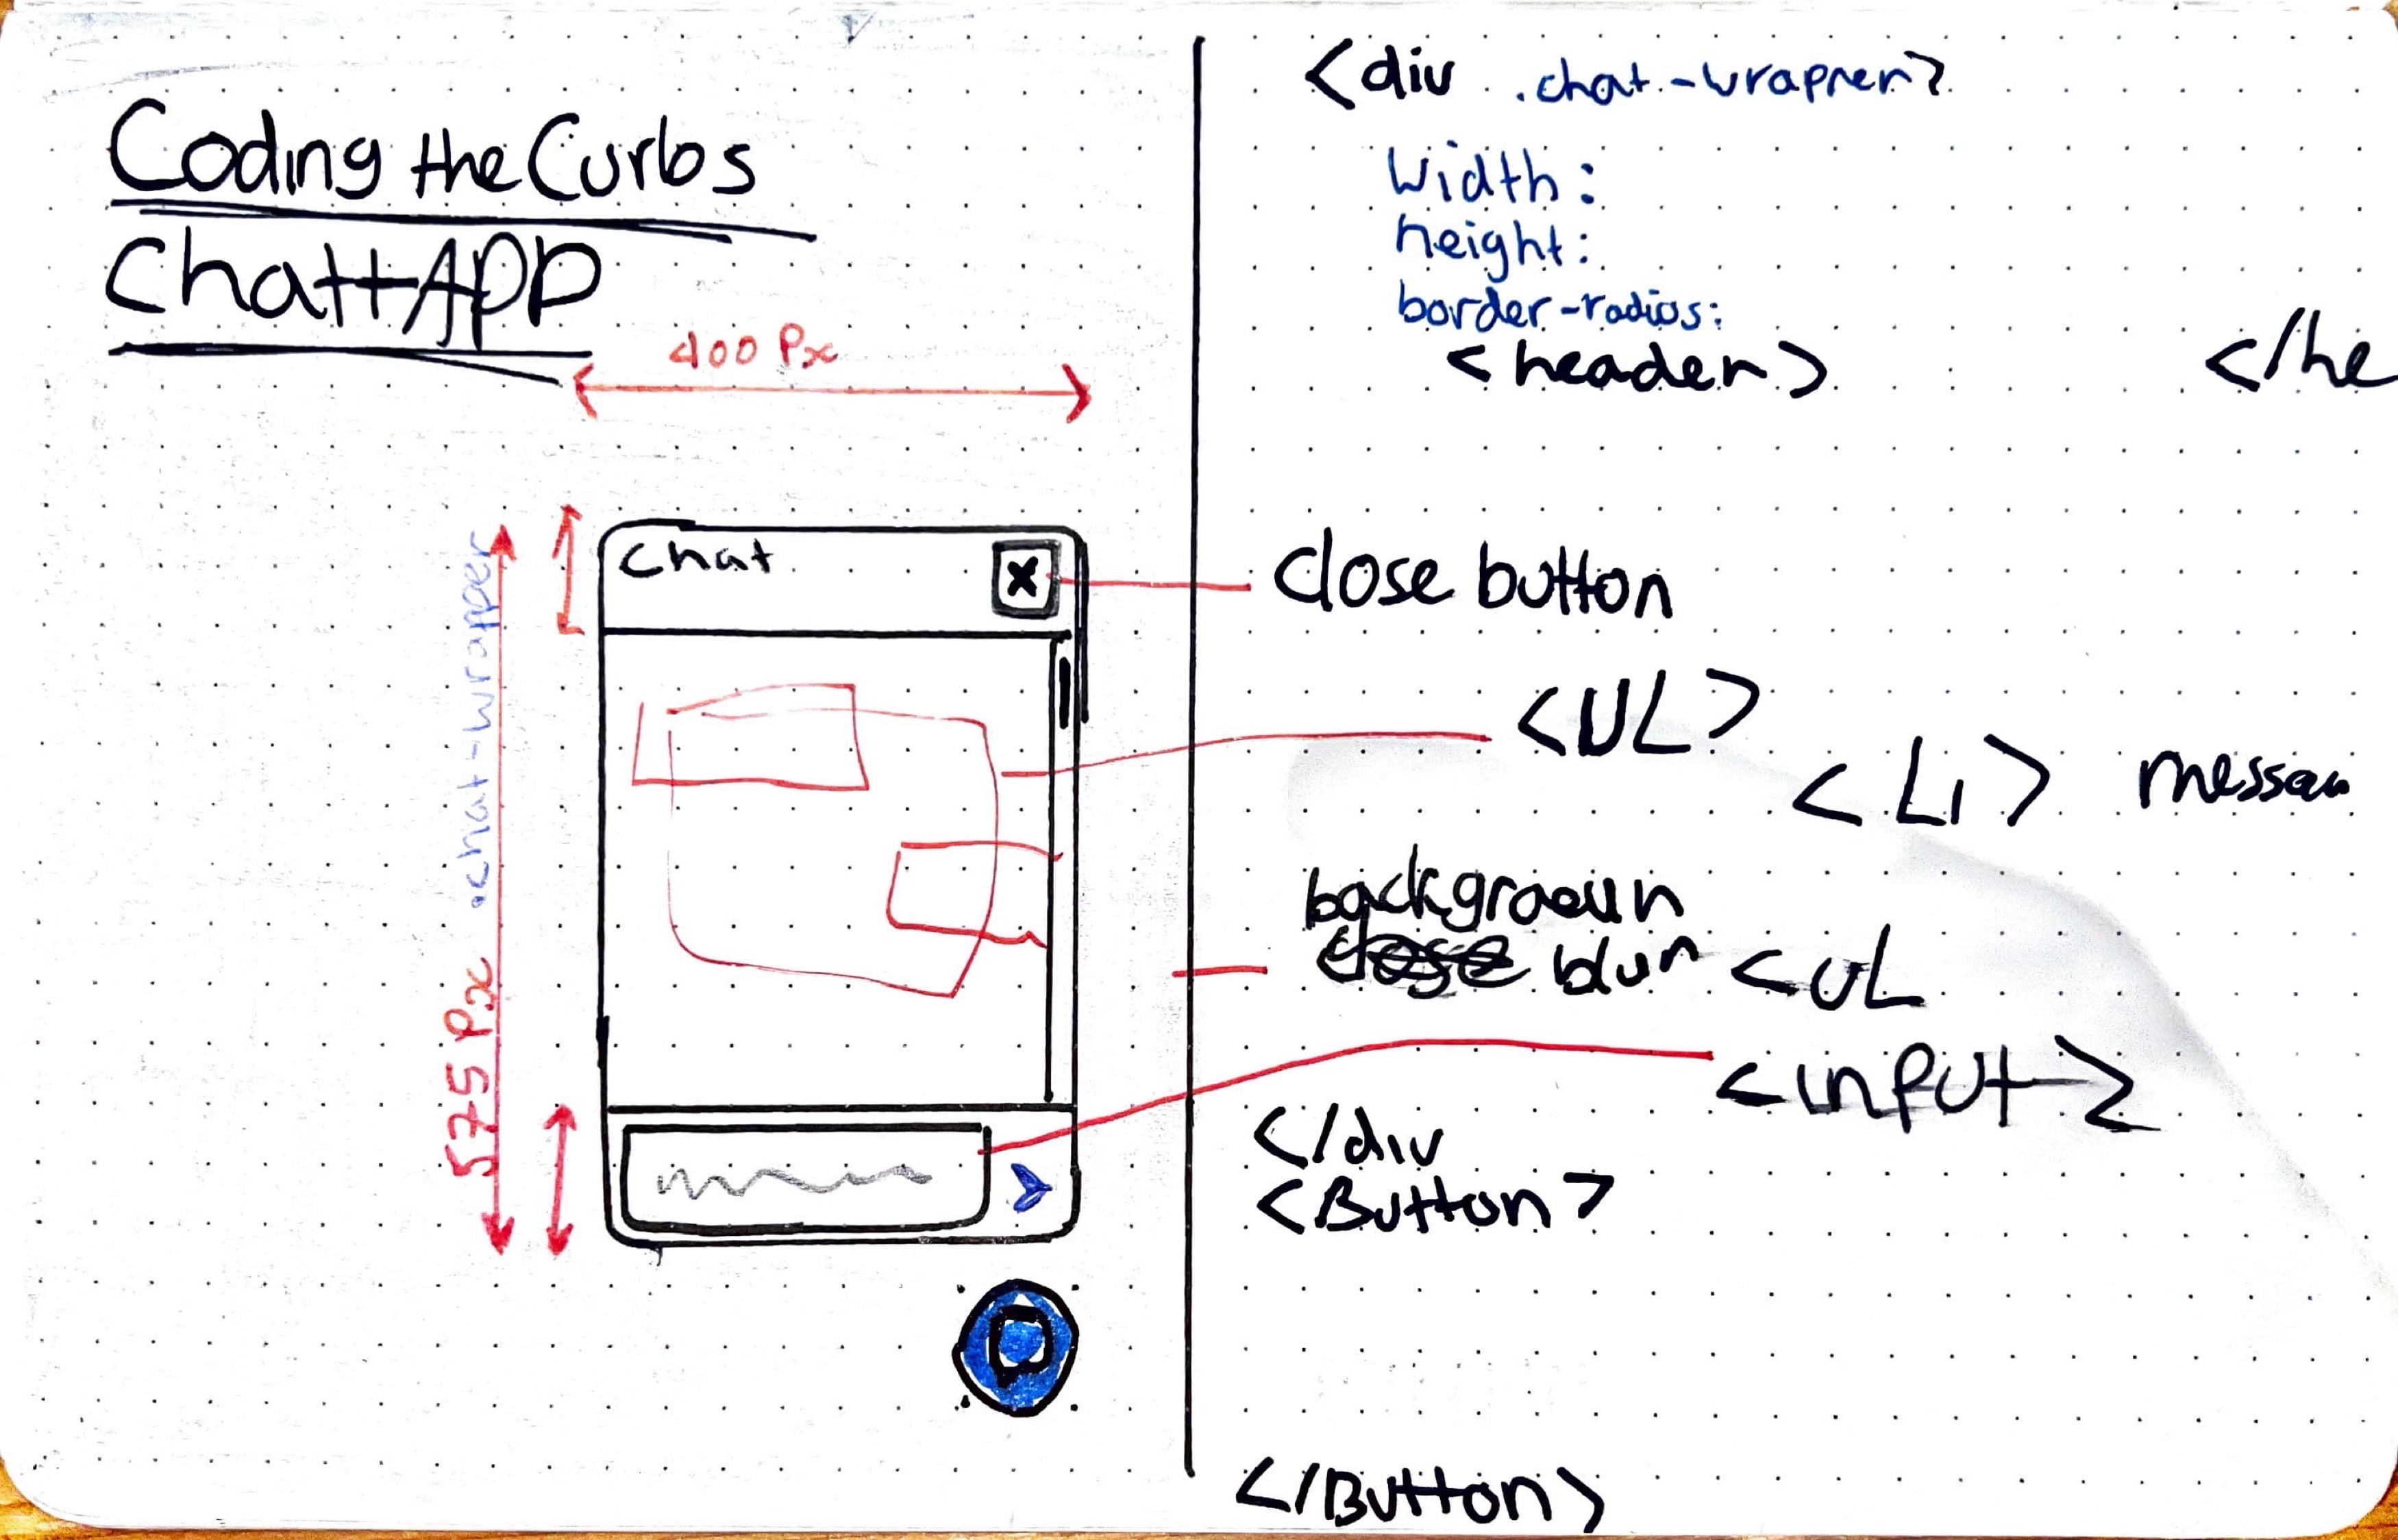 Coding the Curbs
ChattAPP
400 Px
.chat-wrapper
575 Px
chat
X
<div .chat-wrapper>
width:
height:
border-radios:
<header>
</he
close button
<UL>
<Li>
blur <UL
<input>
</div
<Button>
</Button>